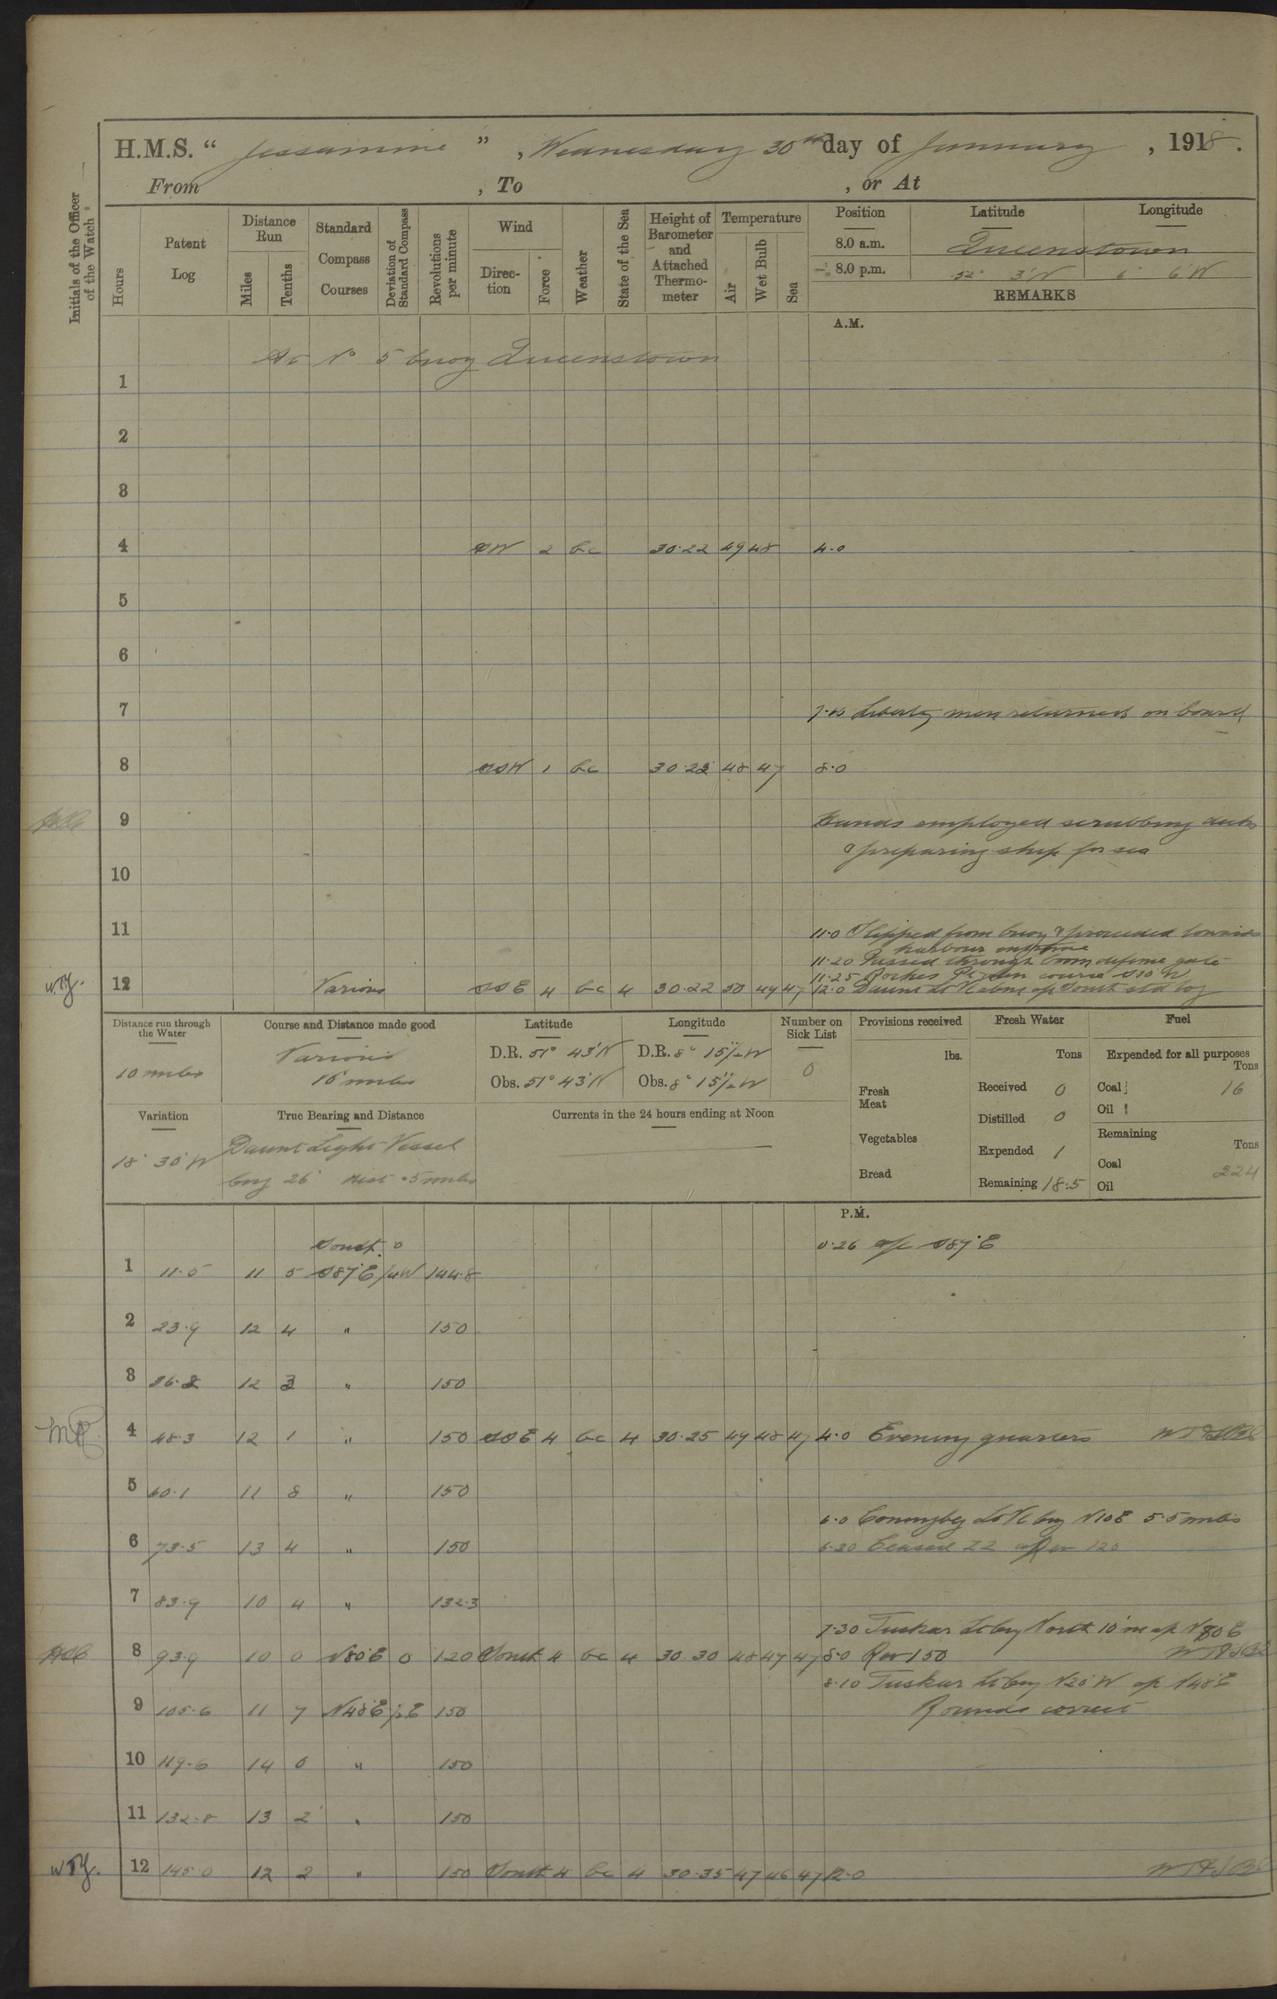 H.M.S. “ Jessamine ” , Wednesday 30th day of January , 1918.
From , To , or At
Initials of the Officer of the Watch
Hours
Patent Log
Distance Run
Miles
Tenths
Standard Compass Courses
Deviation of Standard Compass
Revolutions per minute
Wind
Direction
Force
Weather
State of the Sea
Height of Barometer and Attached Thermometer
Temperature
Air
Wet Bulb
Sea
Position Latitude Longitude
8.0 a.m. Queenstown
8.0 p.m. 52° 3'N 6° 6'W
REMARKS
A.M.
At No 5 buoy Queenstown
1
2
3
4 SW 2 bc 30.22 49 48 4.0
5
6
7 Liberty men returned on board
8 SSW 1 bc 30.22 48 47 8.0
9 Hands employed scrubbing decks
& preparing ship for sea
10
11 11.0 Slipped from buoy & proceeded towards
harbour entrance
11.20 Passed through boom defence gate
11.25 Roches Pt
12 Various SSE 4 bc 4 30.22 50 49 47 12.0 Daunt Lt V
W.T.Y.
Distance run through the Water
10 miles
Course and Distance made good
Various
16 miles
Latitude
D.R. 51° 43'N
Obs. 51° 43'N
Longitude
D.R. 8° 15½'W
Obs. 8° 15½'W
Number on Sick List
0
Provisions received
lbs.
Fresh Meat
Vegetables
Bread
Fresh Water
Tons
Received 0
Distilled 0
Expended 1
Remaining 18.5
Fuel
Expended for all purposes
Tons
Coal 16
Oil
Remaining
Tons
Coal 224
Oil
Variation
18° 30' W
True Bearing and Distance
Daunt Light Vessel
brg 26° dist .5 miles
Currents in the 24 hours ending at Noon
P.M.
South 0 0.26 a/c S87°E
1 11.5 11 5 S87°E ¼W 144.8
2 23.9 12 4 " 150
3 36.2 12 3 " 150
4 48.3 12 1 " 150 SSE 4 bc 4 30.25 49 48 47 4.0 Evening quarters
5 60.1 11 8 " 150
6.0 Coningbeg Lt V brg N10E 5.5 miles
6 73.5 13 4 " 150 6.30 Ceased ZZ Rev 120
7 83.9 10 4 " 132.3
7.30 Tuskar Lt brg North 10'm a/c N80E
8 93.9 10 0 N80E 0 120 South 4 bc 4 30.30 48 47 47 8.0 Rev 150
8.10 Tuskar Lt brg N20°W a/c N48°E
9 105.6 11 7 N48°E ½E 150 Rounds correct
10 119.6 14 0 " 150
11 132.8 13 2 " 150
12 145.0 12 2 " 150 South 4 bc 4 30.35 47 46 47 12.0
W.T.Y.